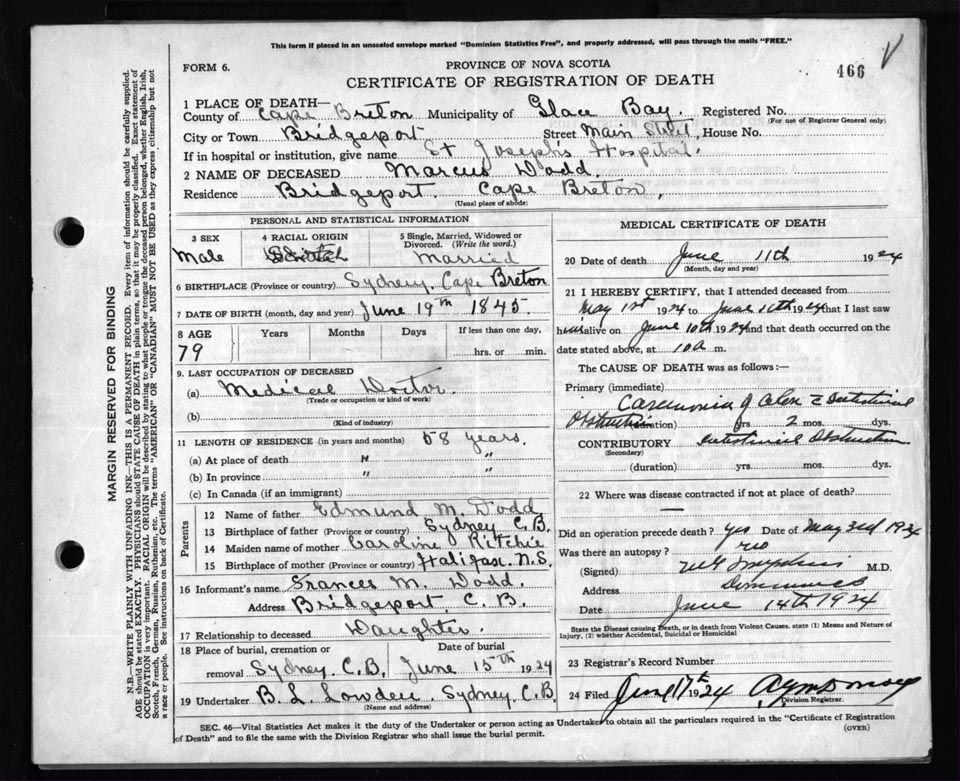 This form if placed in an unsealed envelope marked "Dominion Statistics Free", and properly addressed, will pass through the mails "FREE."
FORM 6.
PROVINCE OF NOVA SCOTIA
466
CERTIFICATE OF REGISTRATION OF DEATH
1 PLACE OF DEATH—
County of Cape Breton Municipality of Glace Bay. Registered No.
(For use of Registrar General only)
City or Town Bridgeport Street Main Street, House No.
If in hospital or institution, give name St Joseph's Hospital.
2 NAME OF DECEASED Marcus Dodd.
Residence Bridgeport. Cape Breton,
(Usual place of abode)
PERSONAL AND STATISTICAL INFORMATION
3 SEX
Male
4 RACIAL ORIGIN
5 Single, Married, Widowed or Divorced. (Write the word.)
Married
6 BIRTHPLACE (Province or country) Sydney, Cape Breton
7 DATE OF BIRTH (month, day and year) June 19th 1845.
8 AGE Years Months Days If less than one day,
79 hrs. or min.
9. LAST OCCUPATION OF DECEASED
(a) Medical Doctor.
(Trade or occupation or work)
(b)
(Kind of industry)
11 LENGTH OF RESIDENCE (in years and months) 58 years.
(a) At place of death " "
(b) In province " "
(c) In Canada (if an immigrant)
Parents
12 Name of father Edmund M. Dodd
13 Birthplace of father (Province or country) Sydney C.B.
14 Maiden name of mother Caroline Ritchie
15 Birthplace of mother (Province or country) Halifax. N.S.
16 Informant's name Frances M. Dodd.
Address Bridgeport, C.B.
17 Relationship to deceased Daughter.
18 Place of burial, cremation or Date of burial
removal Sydney. C.B. June 15th 1924
19 Undertaker B. L. Lowden. Sydney, C.B.
(Name and address)
MEDICAL CERTIFICATE OF DEATH
20 Date of death June 11th 1924
(Month, day and year)
21 I HEREBY CERTIFY, that I attended deceased from
May 1st 1924 to June 11th 1924 that I last saw
him alive on June 10th 1924 and that death occurred on the
date stated above, at 10 a m.
The CAUSE OF DEATH was as follows:—
Primary (immediate)
Carcinoma of Colon Intestinal
Obstruction (duration) yrs. 2 mos. dys.
CONTRIBUTORY Intestinal Obstruction
(Secondary)
(duration) yrs. mos. dys.
22 Where was disease contracted if not at place of death?
Did an operation precede death? yes Date of May 3rd 1924
Was there an autopsy? no
(Signed) M.D.
Address Dominion
Date June 14th 1924
State the Disease causing Death, or in death from Violent Causes, state (1) Means and Nature of Injury, (2) whether Accidental, Suicidal or Homicidal
23 Registrar's Record Number
24 Filed June 17th 1924
Division Registrar.
SEC. 46—Vital Statistics Act makes it the duty of the Undertaker or person acting as Undertaker to obtain all the particulars required in the "Certificate of Registration
of Death" and to file the same with the Division Registrar who shall issue the burial permit.
(OVER)
MARGIN RESERVED FOR BINDING
N.B.—WRITE PLAINLY WITH UNFADING INK—THIS IS A PERMANENT RECORD. Every item of information should be carefully supplied.
AGE should be stated EXACTLY. PHYSICIANS should STATE CAUSE OF DEATH in plain terms, so that it may be properly classified. Exact statement of
OCCUPATION is very important. RACIAL ORIGIN will be described by stating to what people or tongue the deceased person belonged, whether English, Irish,
Scotch, French, German, Russian, Ruthenian, etc. The terms "AMERICAN" or "CANADIAN" MUST NOT BE USED as they express citizenship but not
a race or people. See instructions on back of Certificate.